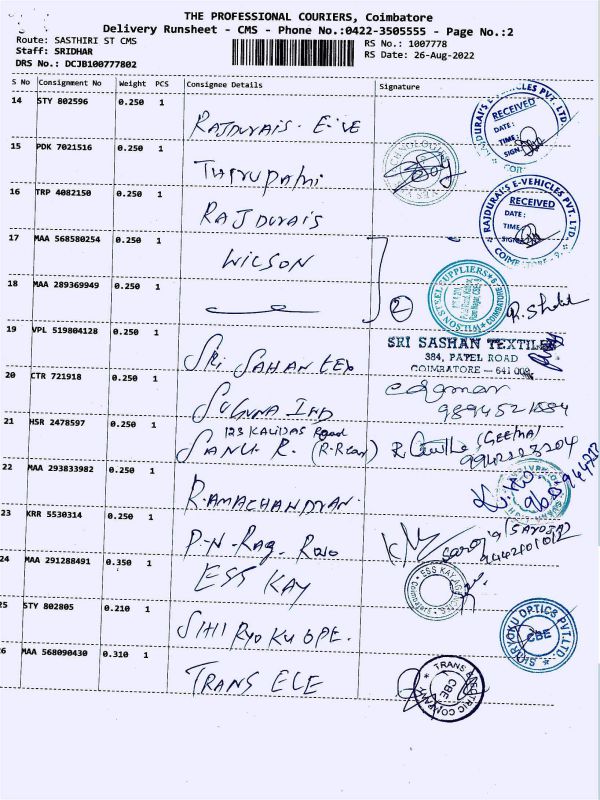 THE PROFESSIONAL COURIERS, Coimbatore
Delivery Runsheet - CMS - Phone No.:0422-3505555 - Page No.:2
Route: SASTHIRI ST CMS
RS No.: 1007778
Staff: SRIDHAR
RS Date: 26-Aug-2022
DRS No.: DCJB100777802
S No Consignment No Weight PCS Consignee Details Signature
14 STY 802596 0.250 1
RAJDURAIS. E-VE
RAJDURAI'S E-VEHICLES PVT. LTD.
RECEIVED
DATE :
TIME
SIGN
15 PDK 7021516 0.250 1
Thirupathi
16 TRP 4082150 0.250 1
RAJDURAIS
RAJDURAI'S E-VEHICLES PVT. LTD.
RECEIVED
DATE :
TIME
SIGN
17 MAA 568580254 0.250 1
WILSON
WILSON STEEL SUPPLIERS
COIMBATORE
18 MAA 289369949 0.250 1
2
19 VPL 519804128 0.250 1
SRI SAHAN TEX
SRI SASHAN TEXTILE
384, PATEL ROAD
COIMBATORE - 641 009
20 CTR 721918 0.250 1
SUGUNA IND
9894521884
21 HSR 2478597 0.250 1
123 KALIDAS Road
SANU R.
(GEETHA)
22 MAA 293833982 0.250 1
RAMACHANDRAN
23 KRR 5530314 0.250 1
P-N-Rag. Rao
Saroja (SAROJA)
24 MAA 291288491 0.350 1
ESS KAY
ESS KAY
25 STY 802805 0.210 1
SIHI RYOKU OPE.
SHIRYOKU OPTICS PVT.LTD.
CBE
26 MAA 568090430 0.310 1
TRANS ELE
TRANS ELECTRIC COMPANY
CBE